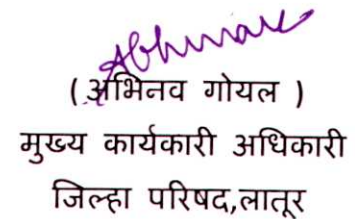 Abhinav
( अभिनव गोयल )
मुख्य कार्यकारी अधिकारी
जिल्हा परिषद,लातूर